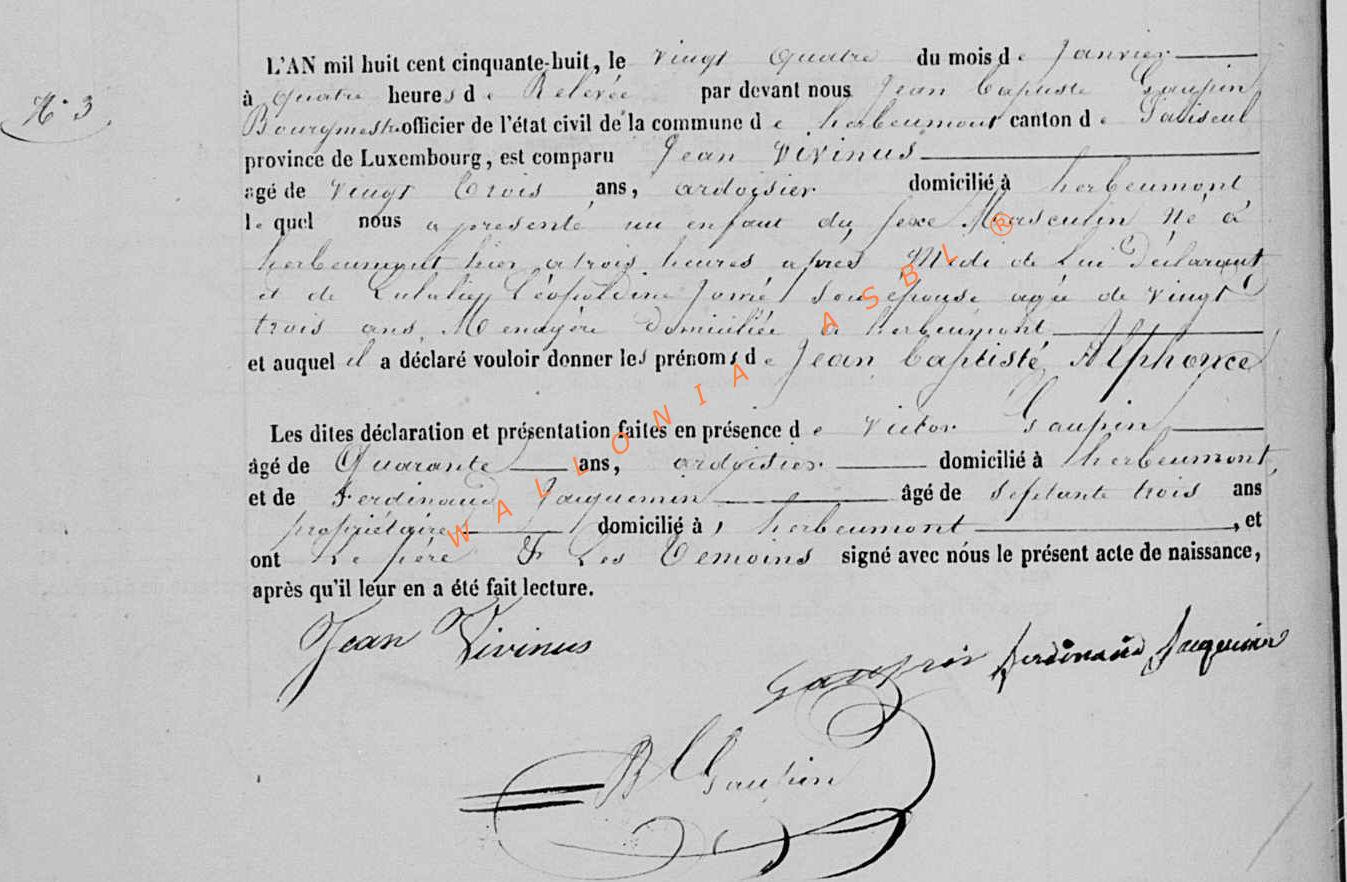 N° 3
L'AN mil huit cent cinquante-huit, le vingt quatre du mois de Janvier
à quatre heures de Relevée par devant nous Jean Baptiste Gaupin
Bourgmestre officier de l'état civil de la commune de herbeumont canton de Paliseul
province de Luxembourg, est comparu Jean Vivinus
agé de vingt trois ans, ardoisier domicilié à herbeumont
lequel nous a presenté un enfant du sexe Masculin Né à
herbeumont hier a trois heures apres Midi de Lui Déclarant
et de Léopoldine son epouse agée de vingt
trois ans Menagère Domiciliée à herbeumont
et auquel il a déclaré vouloir donner les prénoms de Jean Baptiste Alphonce
Les dites déclaration et présentation faites en présence de Victor Gaupin
âgé de Quarante ans, ardoisier domicilié à herbeumont,
et de Ferdinand Jacquemin âgé de septante trois ans
propriétaire domicilié à herbeumont, et
ont Le père & Les Temoins signé avec nous le présent acte de naissance,
après qu'il leur en a été fait lecture.
Jean Vivinus
Gaupin Ferdinand Jacquemin
JB Gaupin
WALLONIA ASBL ®